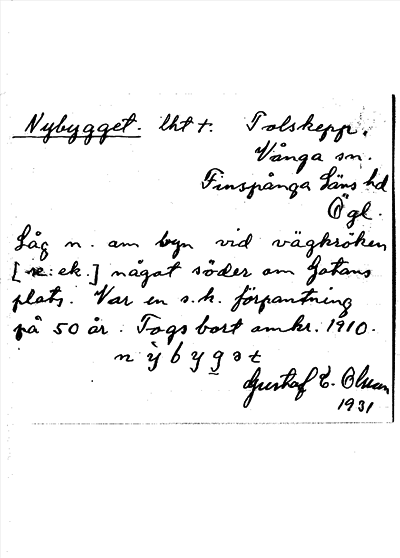 Nybygget. lht t. Tolskepp,
Vånga sn.
Finspånga Läns hd
Ögl.
Låg n. om byn vid vägkröken
[æ: ek.] något söder om Gotans
plats. Var en s.k. förpantning
på 50 år. Togs bort omkr. 1910.
n ỳ b y g ə t
Gustaf E. Olsson
1931